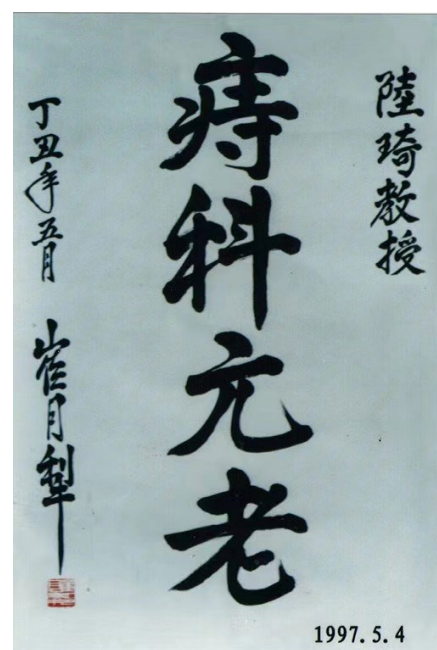 陸琦教授
痔科元老
丁丑年五月
崔月犁
1997.5.4